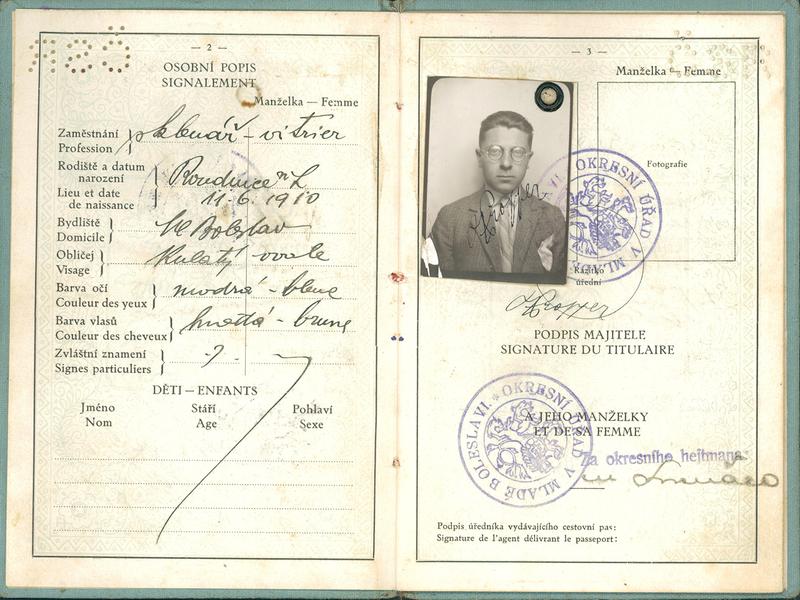 — 2 —
OSOBNÍ POPIS
SIGNALEMENT
Manželka — Femme
Zaměstnání
Profession
sklenář – vitrier
Rodiště a datum
narození
Lieu et date
de naissance
Roudnice n L
11. 6. 1910
Bydliště
Domicile
Ml Boleslav
Obličej
Visage
kulatý – ovale
Barva očí
Couleur des yeux
modrá – bleue
Barva vlasů
Couleur des cheveux
hnědá – brune
Zvláštní znamení
Signes particuliers
DĚTI — ENFANTS
Jméno Stáří Pohlaví
Nom Age Sexe
— 3 —
Manželka — Femme
Fotografie
Razítko
úřední
OKRESNÍ ÚŘAD V
PODPIS MAJITELE
SIGNATURE DU TITULAIRE
OKRESNÍ ÚŘAD V MLADÉ BOLESLAVI
A JEHO MANŽELKY
ET DE SA FEMME
Za okresního hejtmana:
Podpis úředníka vydávajícího cestovní pas:
Signature de l'agent délivrant le passeport: